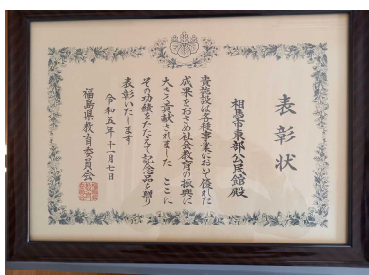 表彰状
相馬市東部公民館殿
貴施設は各種事業において優れた
成果をおさめ社会教育の振興に
大きく貢献されました ここに
その功績をたたえて記念品を贈り
表彰いたします
令和五年十一月七日
福島県教育委員会